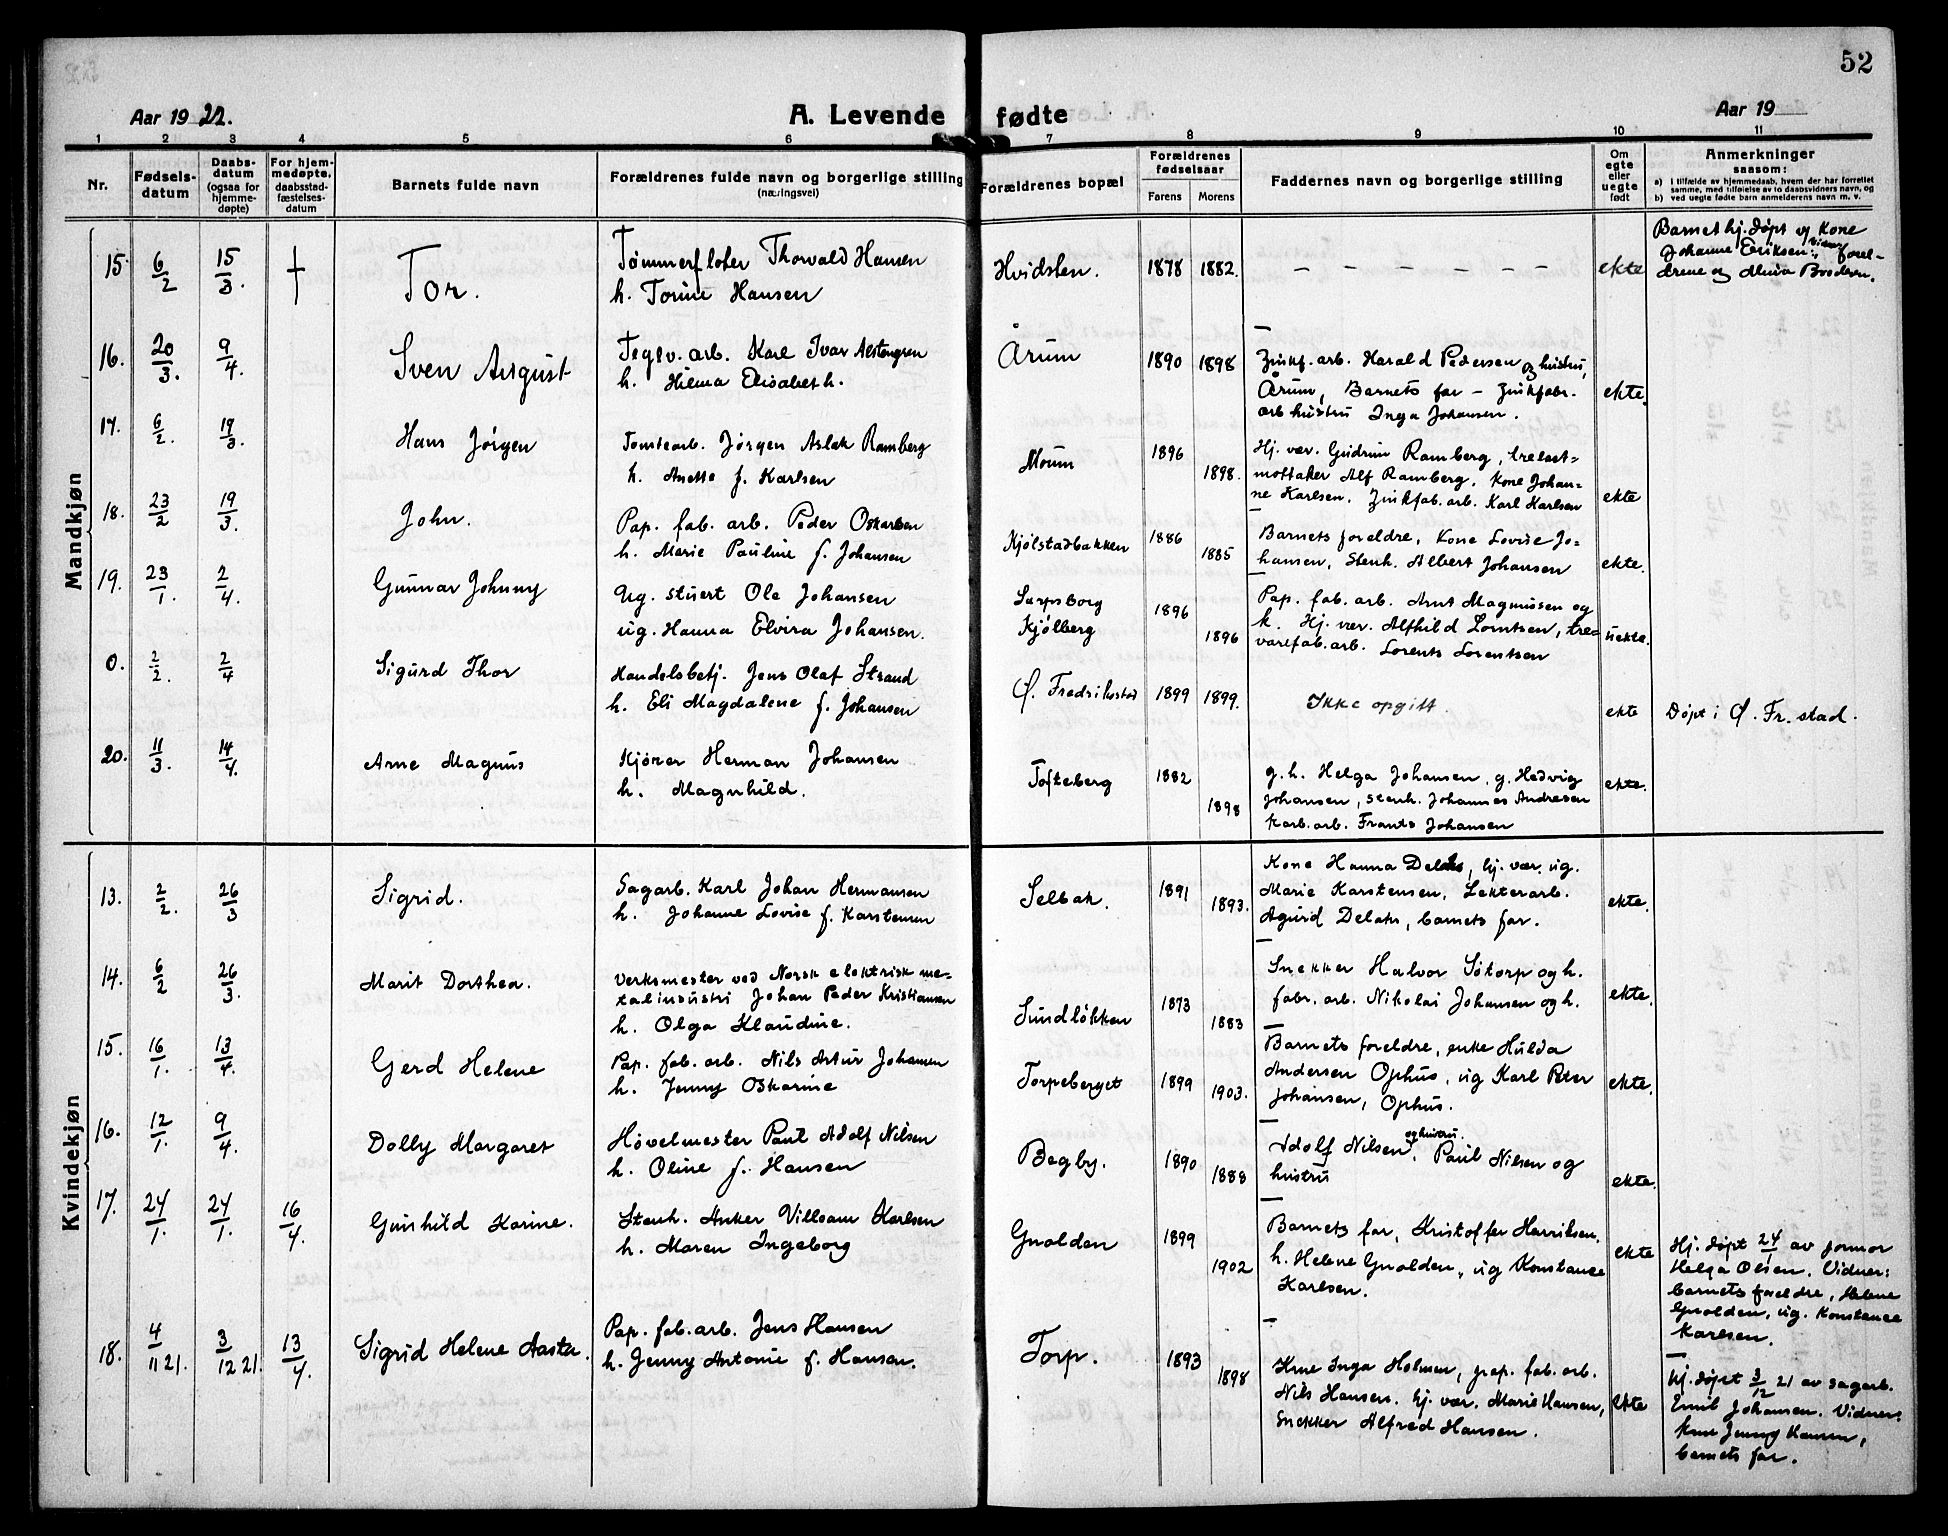 52
Aar 1922.
A. Levende fødte
Aar 19
1 2 3 4 5 6 7 8 9 10 11
Nr.
Fødsels-
datum
Daabs-
datum
(ogsaa for
hjemme-
døpte)
For hjem-
medøpte,
daabsstad-
fæstelses-
datum
Barnets fulde navn
Forældrenes fulde navn og borgerlige stilling
(næringsvei)
Forældrenes bopæl
Forældrenes
fødselsaar
Farens Morens
Faddernes navn og borgerlige stilling
Om
egte
eller
uegte
født
Anmerkninger
saasom:
a) i tilfælde av hjemmedaab, hvem der har forrettet
samme, med tilføielse av to daabsvidners navn, og
b) ved uegte fødte barn anmelderens navn m. v.
Mandkjøn
15. 6/2 15/3. †
Tor.
Tømmerfløter Thorvald Hansen
h. Torine Hansen
Hvidsten. 1878 1882.
– – – – – – –
ekte
Barnet hj. døpt av Kone
Johanne Eriksen. Vidner forel-
drene og
16. 20/3. 9/4.
Sven August
Teglv. arb. Karl Ivar Alstengren
h. Hilma Elisabeth.
Årum 1890 1898
Zinkf. arb. Harald Pedersen og hustru,
Årum, Barnets far – Zinkfabr.
arb hustru Inga Johansen.
ekte.
17. 6/2. 19/3.
Hans Jørgen
Tomtearb. Jørgen Aslak Ramberg
h. Anette f. Karlsen
Moum 1896 1898.
Hj. vær. Gudrun Ramberg, trelast=
mottaker Alf Ramberg, Kone Johan=
ne Karlsen, Zinkfab. arb. Karl Karlsen
ekte
18. 23/2 19/3.
John.
Pap. fab. arb. Peder Oskarsen
h. Marie Pauline f. Johansen
Kjølstadbakken 1886 1885
Barnets foreldre, Kone Lovise Jo=
hansen, Stenh. Albert Johansen
ekte.
19. 23/1. 2/4.
Gunnar Johnny
Ug. stuert Ole Johansen
ug. Hanna Elvira Johansen.
Sarpsborg
Kjølberg
1896 1896
Pap. fab. arb. Arnt Magnussen og
h. Hj. vær. Alfhild Lorntsen, tre=
varefab. arb. Lorents Lorentsen
uekte.
0. 2/2. 2/4
Sigurd Thor
Handelsbetj. Jens Olaf Strand
h. Eli Magdalene f. Johansen
Ø. Fredrikstad 1899 1899.
Ikke opgitt.
ekte
Døpt i Ø. Fr. stad.
20. 11/3. 14/4.
Arne Magnus
Kjører Herman Johansen
h. Magnhild.
Tofteberg 1882 1898
g. h. Helga Johansen, g. Hedvig
Johansen, stenh. Johannes Andresen
Karb. arb. Frants Johansen
ekte.
Kvindekjøn
13. 2/2. 26/3
Sigrid.
Sagarb. Karl Johan Hermansen
h. Johanne Lovise f. Karstensen
Selbak. 1891 1893.
Kone Hanna, hj. vær. ug.
Marie Karstensen, Lekterarb.
barnets far.
ekte.
14. 6/2 26/3.
Marit Dorthea.
Verksmester ved Norsk elektrisk me-
talindustri Johan Peder Kristiansen
h. Olga Klaudine.
Sundløkken 1873 1883
Snekker Halvor Søtorp og h.
fabr. arb. Nikolai Johansen og h.
ekte.
15. 16/1. 13/4.
Gerd Helene
Pap. fab. arb. Nils Artur Johansen
h. Jenny Oskarine
Torpeberget 1899 1903.
Barnets foreldre, enke Hulda
Andersen Ophus, ug Karl Peter
Johansen, Ophus.
ekte.
16. 12/1. 9/4.
Dolly Margaret
Høvelmester Paul Adolf Nilsen
h. Oline f. Hansen
Begby. 1890 1888
Adolf Nilsen og hustru. Paul Nilsen og
hustru
ekte.
17. 24/1. 24/1. 16/4.
Gunhild Karine.
Stenh. Anker Villsam Karlsen
h. Maren Ingeborg
Gnalden 1899 1902
Barnets far, Kristoffer Henriksen,
h. Helene Gnalden, ug Konstance
Karlsen.
ekte
Hj. døpt 24/1 av jormor
Helga Olsen. Vidner:
barnets foreldre, Helene
Gnolden, ug. Konstance
Karlsen.
18. 4/11 21. 3/12 21. 13/4.
Sigrid Helene Aasta.
Pap. fab. arb. Jens Hansen
h. Jenny Antonie f. Hansen.
Torp. 1893 1898
Kone Inga Holmen, pap. fab. arb.
Nils Hansen. hj. vær. Marie Hansen,
snekker Alfred Hansen.
ekte
Hj. døpt 3/12 21 av sagarb.
Emil Johansen. Vidner:
Kone Jenny Hansen,
barnets far.